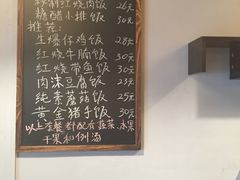 制红烧肉饭 26元
糖醋小排饭 30元
推荐:
生爆仔鸡饭 28元
红烧牛腩饭 30元
红烧带鱼饭 30元
肉沫豆腐饭 25元
纯素蘑菇饭 25元
黄金猪手饭 30元
以上套餐都配有蔬菜、水果
干果和例汤